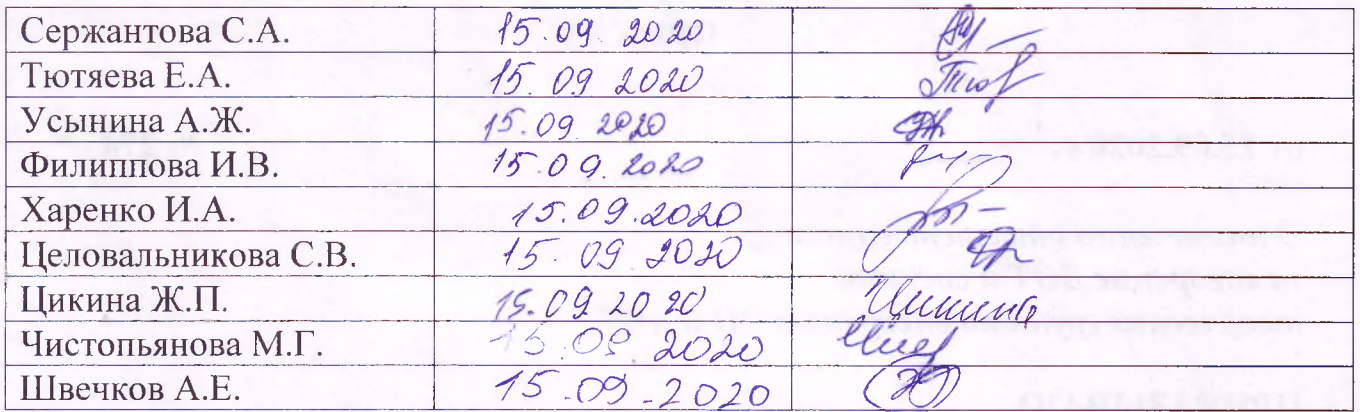 Сержантова С.А. 15.09.2020
Тютяева Е.А. 15.09 2020
Усынина А.Ж. 15.09 2020
Филиппова И.В. 15.09.2020
Харенко И.А. 15.09.2020
Целовальникова С.В. 15.09 2020
Цикина Ж.П. 15.09 2020 Цикина
Чистопьянова М.Г. 15.09.2020
Швечков А.Е. 15.09.2020